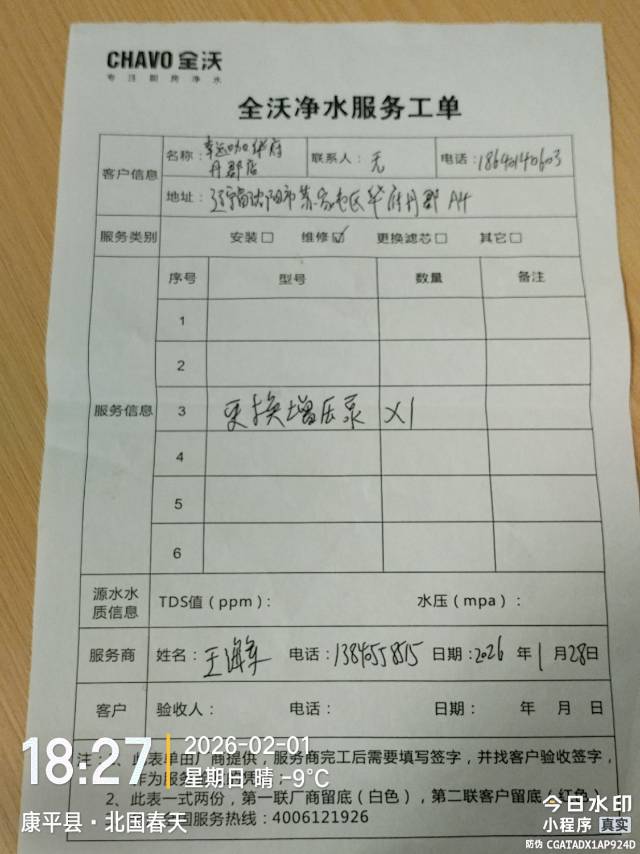 CHAVO 全沃
专注厨房净水
全沃净水服务工单
客户信息
名称：幸运咖华府丹郡店 联系人：无 电话：18640140603
地址：辽宁省沈阳市苏家屯区华府丹郡 A4
服务类别 安装□ 维修☑ 更换滤芯□ 其它□
服务信息
序号 型号 数量 备注
1
2
3 更换增压泵 X1
4
5
6
源水水质信息 TDS值（ppm）： 水压（mpa）：
服务商 姓名：王海军 电话：13840558515 日期：2026 年 1 月 28日
客户 验收人： 电话： 日期： 年 月 日
注：1、此表单由厂商提供，服务商完工后需要填写签字，并找客户验收签字，
作为服务
2、此表一式两份，第一联厂商留底（白色），第二联客户留底（红色）
回服务热线：4006121926
18:27
2026-02-01
星期日 晴 -9℃
康平县·北国春天
今日水印
小程序 真实
防伪 CGATADX1AP924D